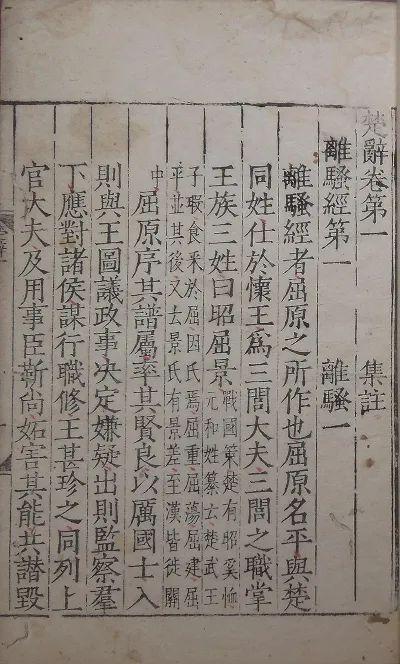 楚辭卷第一 集註
離騷經第一 離騷一
離騷經者屈原之所作也屈原名平與楚
同姓仕於懷王爲三閭大夫三閭之職掌
王族三姓曰昭屈景戰國策楚有昭奚恤元和姓纂云楚武王
子瑕食采於屈因氏焉屈重屈蕩屈建屈平並其後又云景氏有景差至漢皆徙關
中屈原序其譜屬率其賢良以厲國士入
則與王圖議政事决定嫌疑出則監察羣
下應對諸侯謀行職修王甚珍之同列上
官大夫及用事臣靳尚妬害其能共譖毀